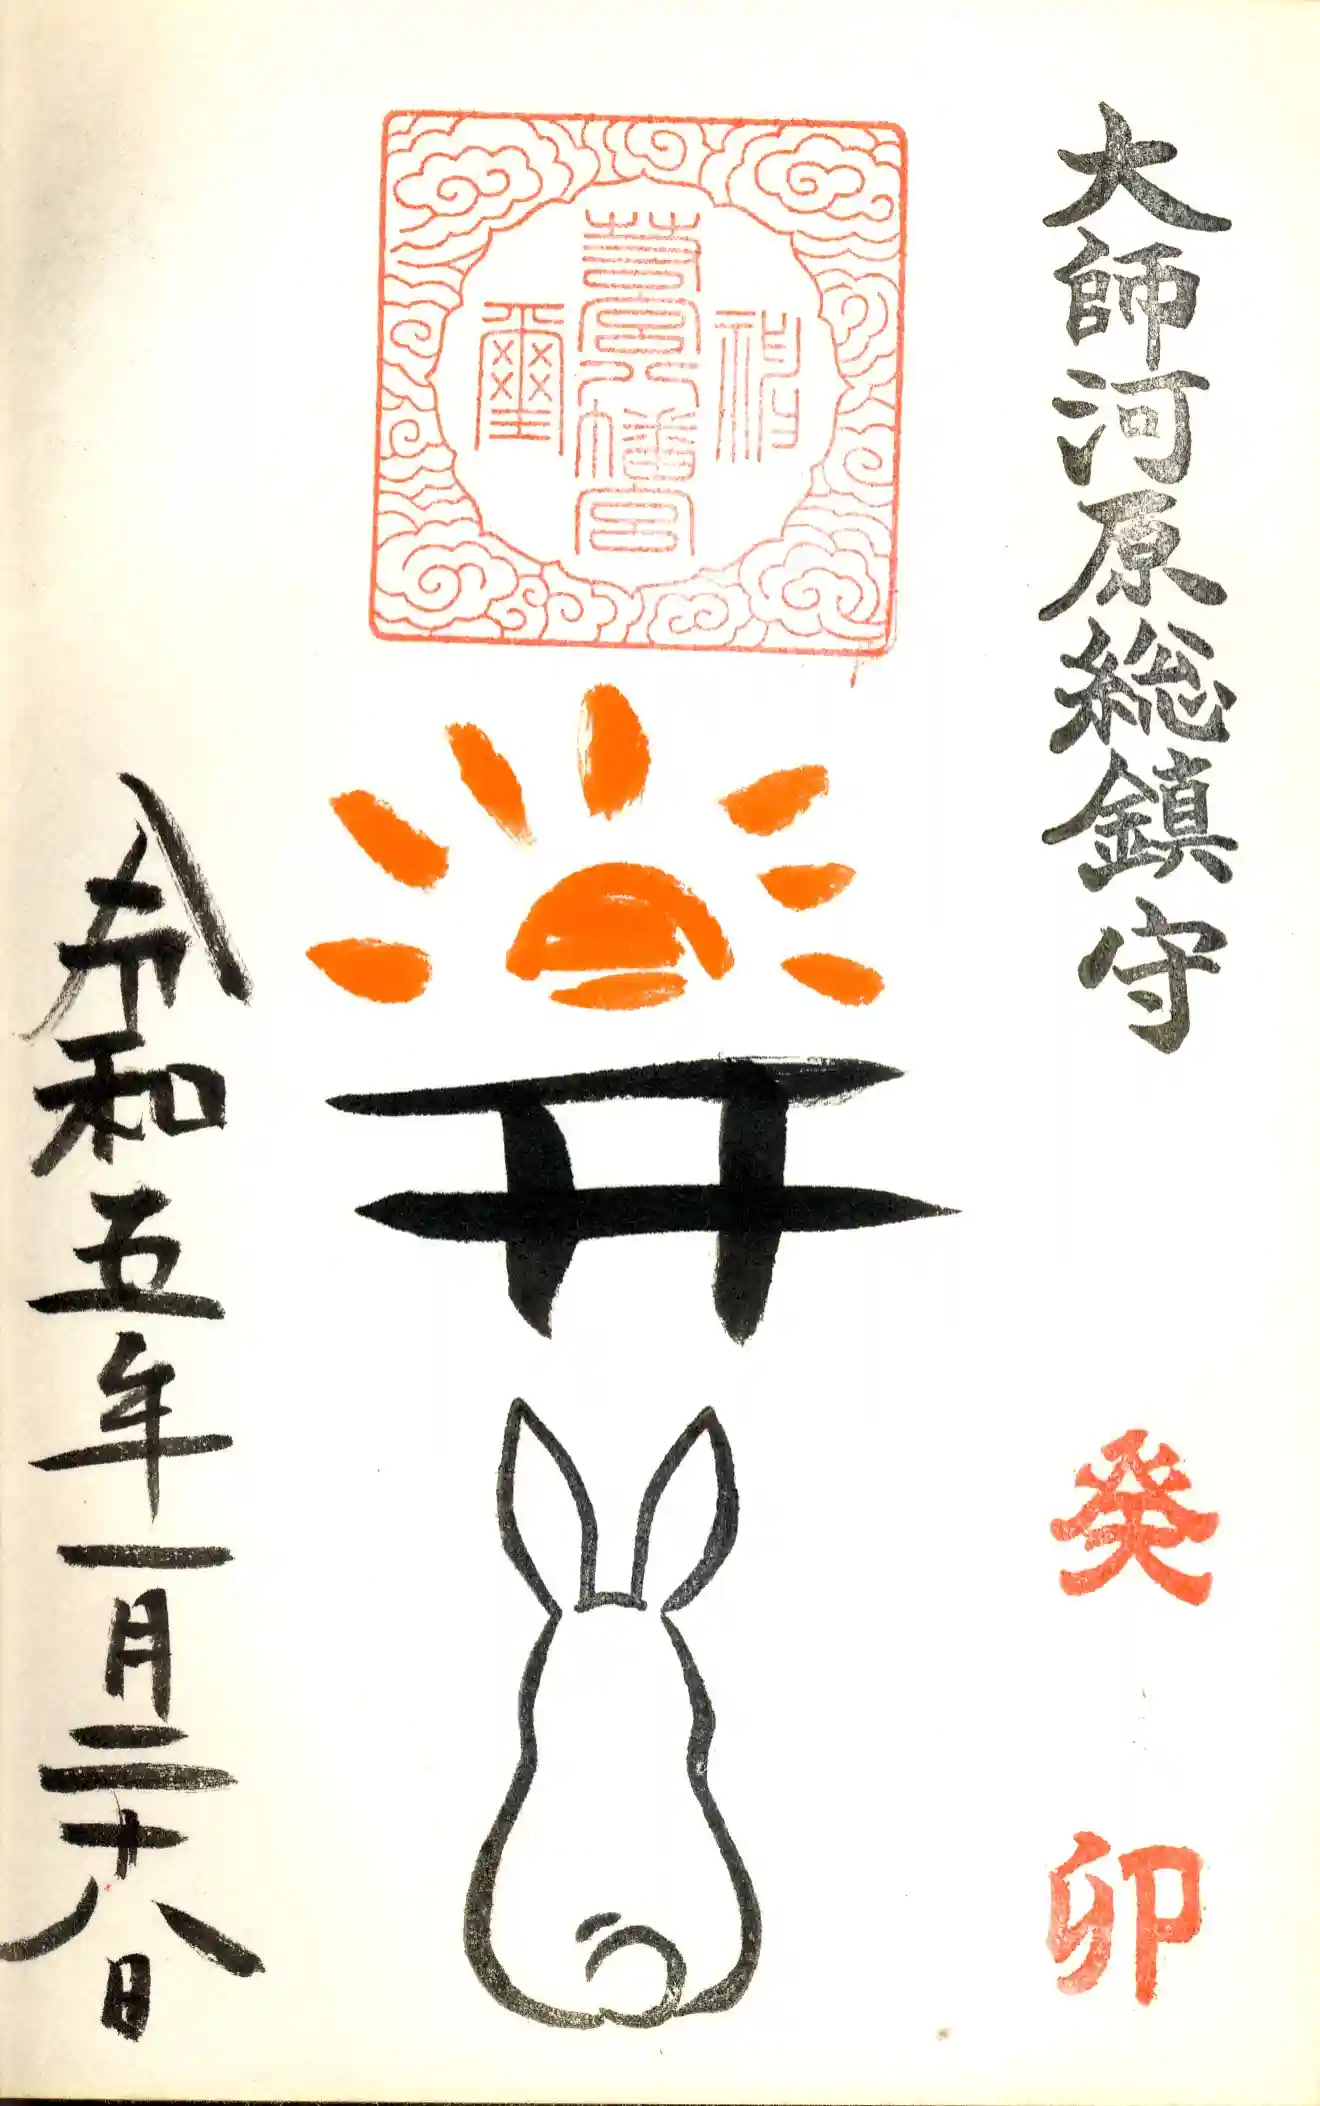 大師河原総鎮守
癸卯
若宮八幡宮
令和五年一月二十八日